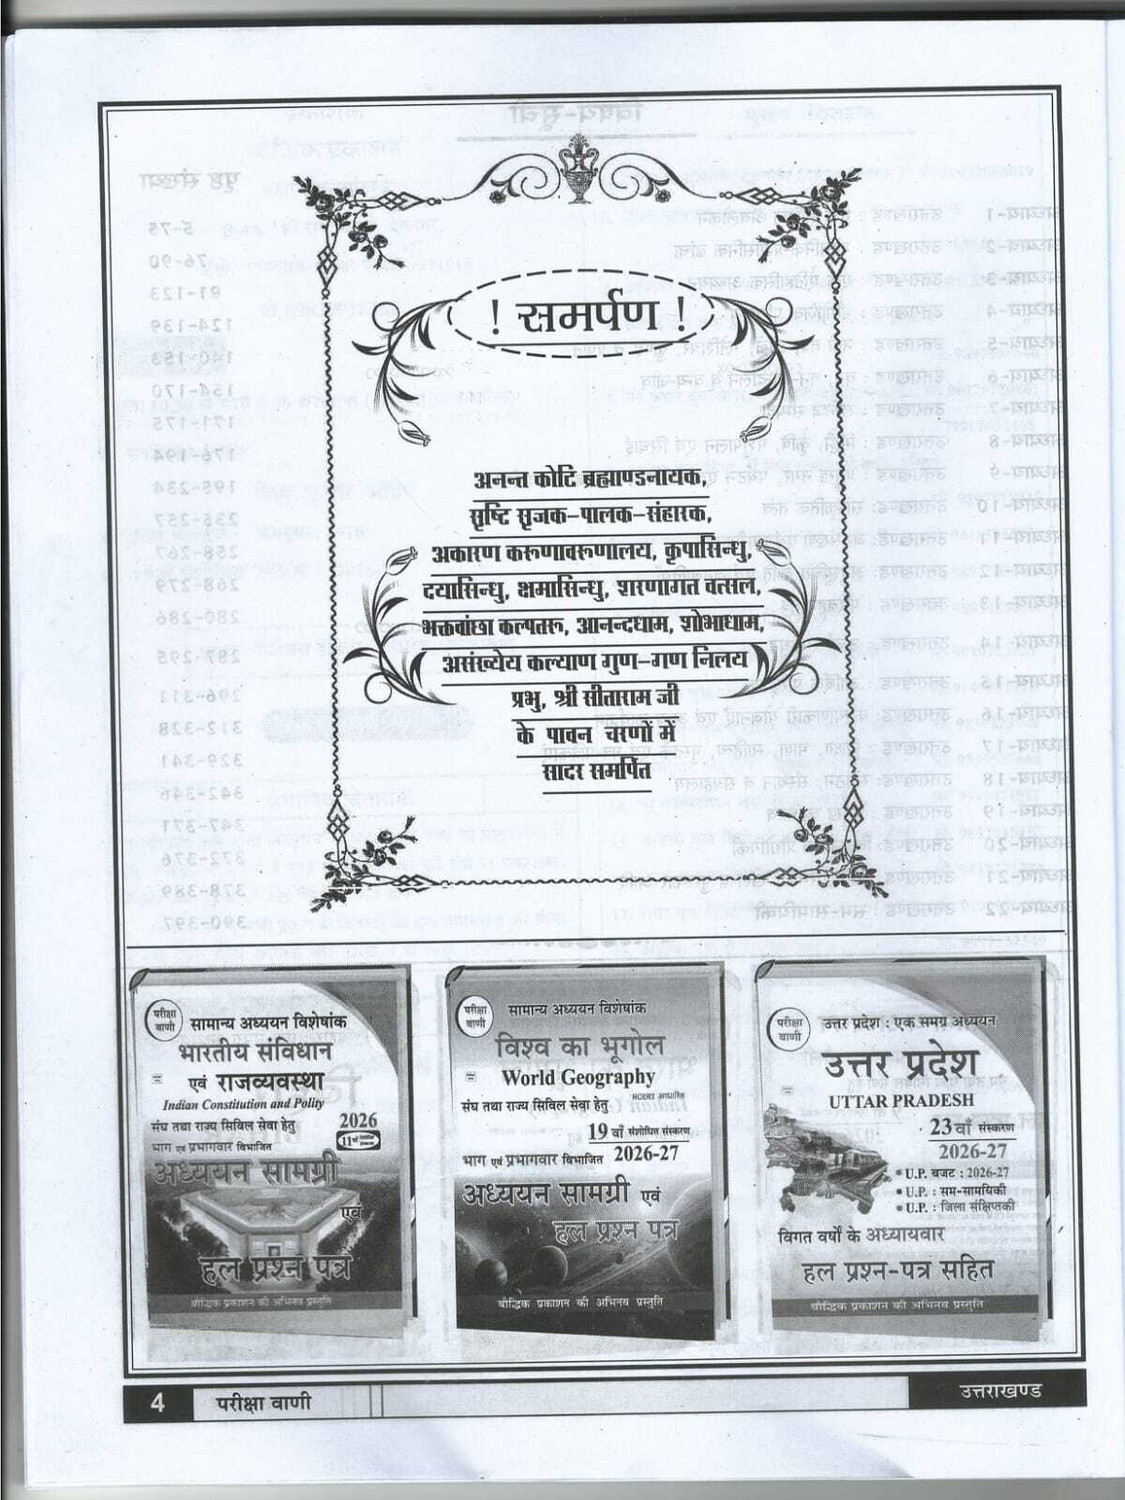 ! समर्पण !
अनन्त कोटि ब्रह्माण्डनायक,
सृष्टि सृजक-पालक-संहारक,
अकारण करूणावरूणालय, कृपासिन्धु,
दयासिन्धु, क्षमासिन्धु, शरणागत वत्सल,
भक्तवांछा कल्पतरू, आनन्दधाम, शोभाधाम,
असंख्येय कल्याण गुण-गण निलय
प्रभु, श्री सीताराम जी
के पावन चरणों में
सादर समर्पित
परीक्षा वाणी
सामान्य अध्ययन विशेषांक
भारतीय संविधान
एवं राजव्यवस्था
Indian Constitution and Polity
संघ तथा राज्य सिविल सेवा हेतु
2026
भाग एवं प्रभागवार विभाजित
अध्ययन सामग्री
एवं
हल प्रश्न पत्र
बौद्धिक प्रकाशन की अभिनव प्रस्तुति
परीक्षा वाणी
सामान्य अध्ययन विशेषांक
विश्व का भूगोल
World Geography
NCERT आधारित
संघ तथा राज्य सिविल सेवा हेतु
19 वाँ संशोधित संस्करण
भाग एवं प्रभागवार विभाजित 2026-27
अध्ययन सामग्री एवं
हल प्रश्न पत्र
बौद्धिक प्रकाशन की अभिनव प्रस्तुति
परीक्षा वाणी
उत्तर प्रदेश : एक समग्र अध्ययन
उत्तर प्रदेश
UTTAR PRADESH
23वाँ संस्करण
2026-27
• U.P. बजट : 2026-27
• U.P. : सम-सामयिकी
• U.P. : जिला संक्षिप्तकी
विगत वर्षों के अध्यायवार
हल प्रश्न-पत्र सहित
बौद्धिक प्रकाशन की अभिनव प्रस्तुति
4 परीक्षा वाणी उत्तराखण्ड